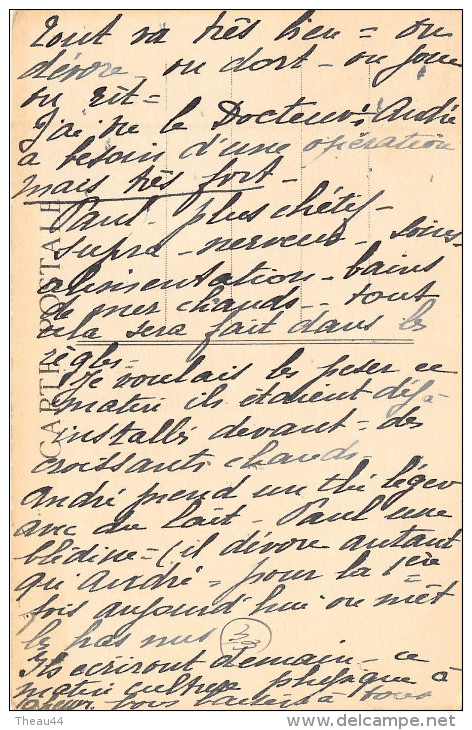 Tout va très bien = on
dévore - on dort - on joue
on rit =
J'ai vu le Docteur: André
a besoin d'une opération
mais très fort -
Paul - plus chétif -
supra - nerveux - soins
alimentation - bains
de mer chauds - tout
cela sera fait dans les
règles -
Je voulais les peser ce
matin ils étaient déjà
installés devant - des
croissants chauds -
André prend un thé léger
avec du lait - Paul une
blédine = (il dévore autant
qu'André = pour la 1ère
fois aujourd'hui on met
les pas nus
Ils écriront demain - ce
matin culture physique à
tous
CARTE POSTALE
Theau44
www.delcampe.net